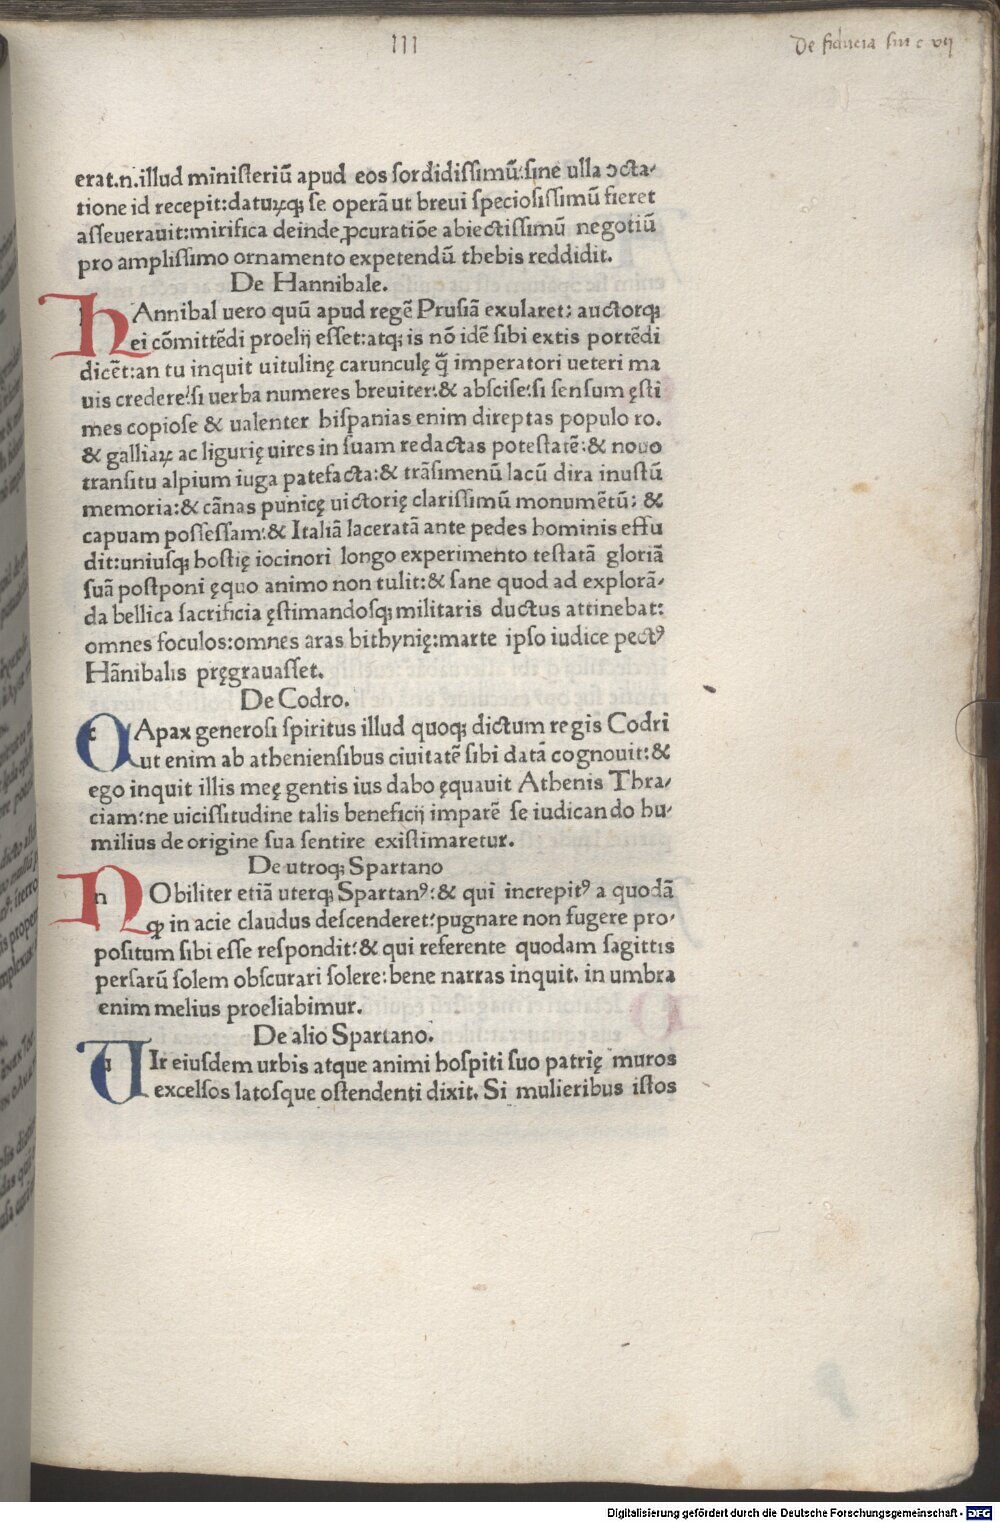 III
De fiducia sui c vij
erat.n.illud ministeriū apud eos sordidissimū:sine ulla ↄcta-
tione id recepit:datuꝝqꝫ se operā ut breui speciosissimū fieret
asseuerauit:mirifica deinde ꝓcuratiōe abiectissimū negotiū
pro amplissimo ornamento expetendū thebis reddidit.
De Hannibale.
hAnnibal uero quū apud regē Prusiā exularet: auctorqꝫ
ei cōmittēdi proelij esset:atqꝫ is nō idē sibi extis portēdi
dicēt:an tu inquit uitulinę carunculę q̄ imperatori ueteri ma
uis credere:si uerba numeres breuiter:& abscise:si sensum ęsti
mes copiose & ualenter hispanias enim direptas populo ro.
& galliaꝝ ac ligurię uires in suam redactas potestatē:& nouo
transitu alpium iuga patefacta:& trāsimenū lacū dira inustū
memoria:& cānas punicę uictorię clarissimū monumētū: &
capuam possessam:& Italiā laceratā ante pedes hominis effu
dit:uniusqꝫ hostię iocinori longo experimento testatā gloriā
suā postponi ęquo animo non tulit:& sane quod ad explorā-
da bellica sacrificia ęstimandosqꝫ militaris ductus attinebat:
omnes foculos:omnes aras bithynię:marte ipso iudice pectꝰ
Hānibalis pręgrauasset.
De Codro.
CApax generosi spiritus illud quoqꝫ dictum regis Codri
ut enim ab atheniensibus ciuitatē sibi datā cognouit:&
ego inquit illis meę gentis ius dabo ęquauit Athenis Thra-
ciam:ne uicissitudine talis beneficij imparē se iudicando hu-
milius de origine sua sentire existimaretur.
De utroqꝫ Spartano
nObiliter etiā uterqꝫ Spartanꝰ:& qui increpitꝰ a quodā
ꝙ in acie claudus descenderet:pugnare non fugere pro-
positum sibi esse respondit:& qui referente quodam sagittis
persarū solem obscurari solere:bene narras inquit. in umbra
enim melius proeliabimur.
De alio Spartano.
uIr eiusdem urbis atque animi hospiti suo patrię muros
excelsos latosque ostendenti dixit. Si mulieribus istos
Digitalisierung gefördert durch die Deutsche Forschungsgemeinschaft - DFG